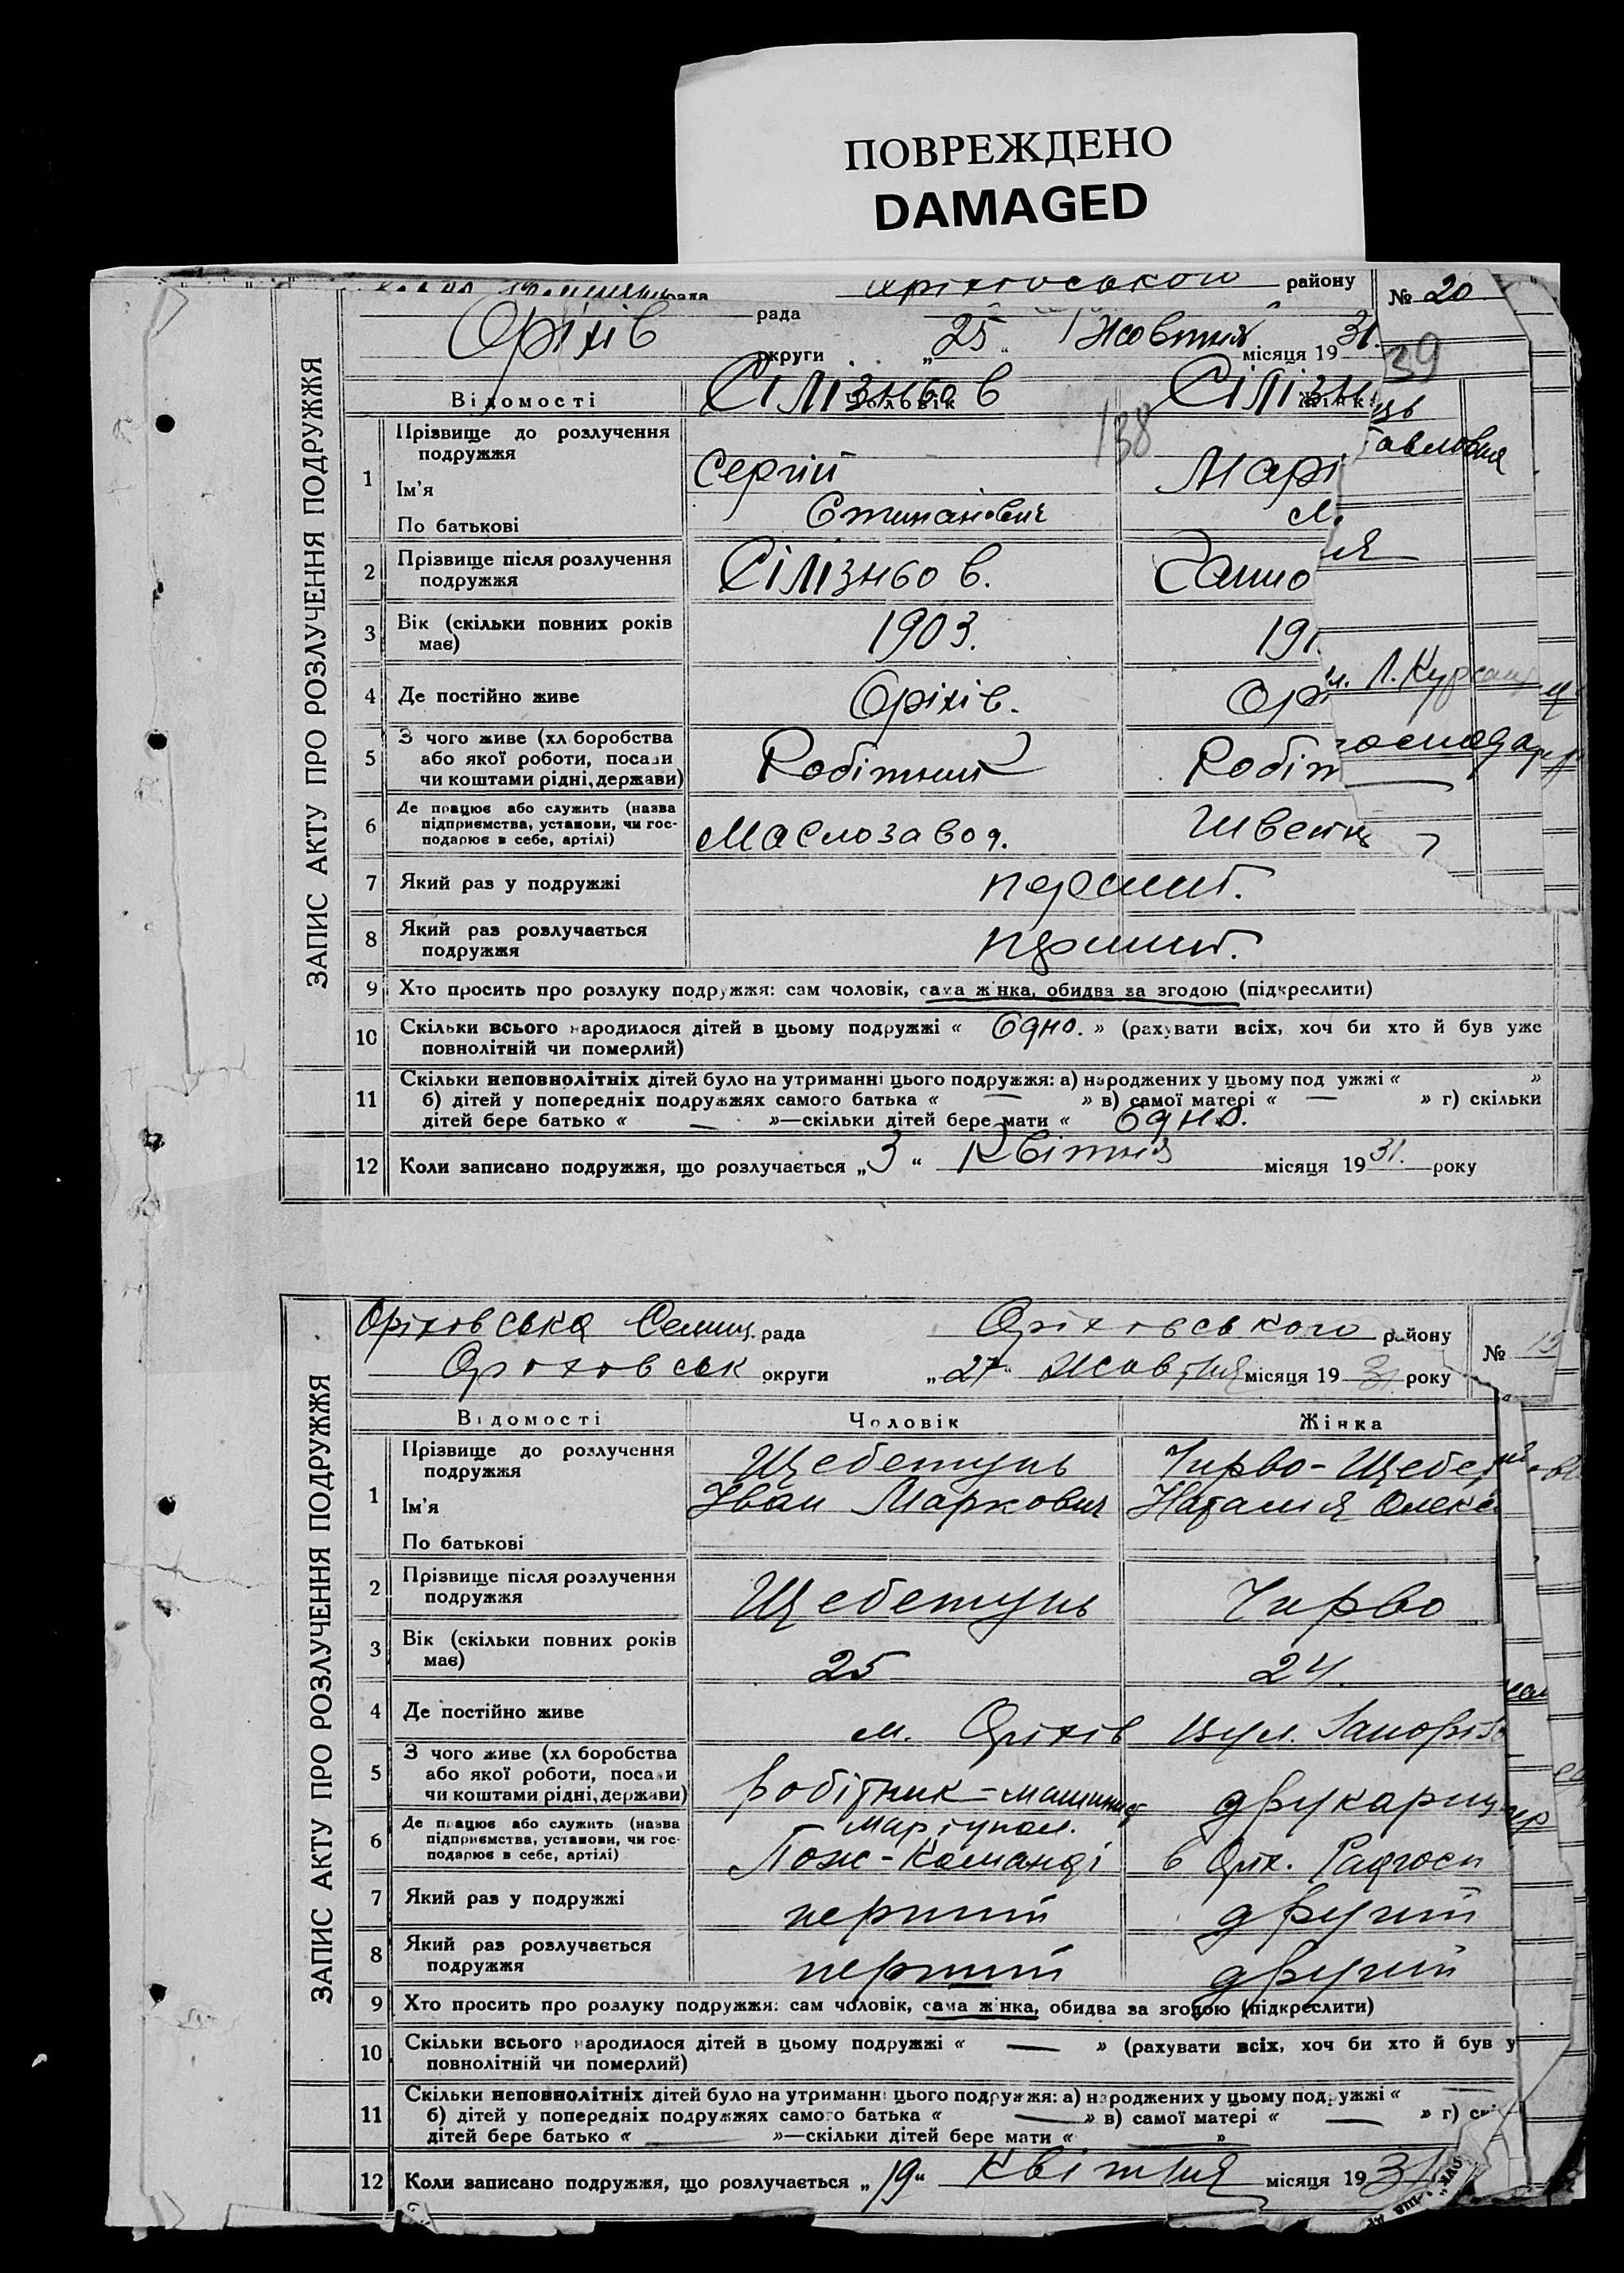 ПОВРЕЖДЕНО
DAMAGED
рада Оріховського району № 20
Оріхів рада
округи „25“ Жовтня місяця 19 31.
39
Відомості Чоловік Жінк
138
ЗАПИС АКТУ ПРО РОЗЛУЧЕННЯ ПОДРУЖЖЯ
1 Прізвище до розлучення подружжя Сілізньов Сілізнь
Ім'я Сергій Марі
По батькові Степанович
авловня
2 Прізвище після розлучення подружжя Сілізньов.
3 Вік (скільки повних років має) 1903. 191
4 Де постійно живе Оріхів. Орі
Л. Курсан
5 З чого живе (хліборобства або якої роботи, посади чи коштами рідні, держави) Робітник Робіт
господар
6 Де працює або служить (назва підприємства, установи, чи господарює в себе, артілі) Маслозавод. Швейн
7 Який раз у подружжі перший.
8 Який раз розлучається подружжя перший.
9 Хто просить про розлуку подружжя: сам чоловік, сама жінка, обидва за згодою (підкреслити)
10 Скільки всього народилося дітей в цьому подружжі « Одно. » (рахувати всіх, хоч би хто й був уже
повнолітній чи померлий)
11 Скільки неповнолітніх дітей було на утриманні цього подружжя: а) народжених у цьому подружжі « »
б) дітей у попередніх подружжях самого батька « — » в) самої матері « — » г) скільки
дітей бере батько « — »—скільки дітей бере мати « Одно.
12 Коли записано подружжя, що розлучається „3“ Квітня місяця 19 31. року
Оріховська Селищ. рада Оріховського району №
Ороховськ округи „27“ Жовтня місяця 19 31 року
Відомості Чоловік Жінка
ЗАПИС АКТУ ПРО РОЗЛУЧЕННЯ ПОДРУЖЖЯ
1 Прізвище до розлучення подружжя Щебетунь Чирво-Щебет
Ім'я Іван Маркович Наталія Олекс
По батькові
2 Прізвище після розлучення подружжя Щебетунь Чирво
3 Вік (скільки повних років має) 25 24
4 Де постійно живе м. Оріхів вул. Запоріз
5 З чого живе (хліборобства або якої роботи, посади чи коштами рідні, держави) робітник-машиніст друкарщ
6 Де працює або служить (назва підприємства, установи, чи господарює в себе, артілі) Маріупол. Пож-Команді в Оріх. Радгосп
7 Який раз у подружжі перший другий
8 Який раз розлучається подружжя перший другий
9 Хто просить про розлуку подружжя: сам чоловік, сама жінка, обидва за згодою (підкреслити)
10 Скільки всього народилося дітей в цьому подружжі « — » (рахувати всіх, хоч би хто й був у
повнолітній чи померлий)
11 Скільки неповнолітніх дітей було на утриманні цього подружжя: а) народжених у цьому подружжі « —
б) дітей у попередніх подружжях самого батька « — » в) самої матері « — » г) скі
дітей бере батько « — »—скільки дітей бере мати « — »
12 Коли записано подружжя, що розлучається „19“ Квітня місяця 19 31